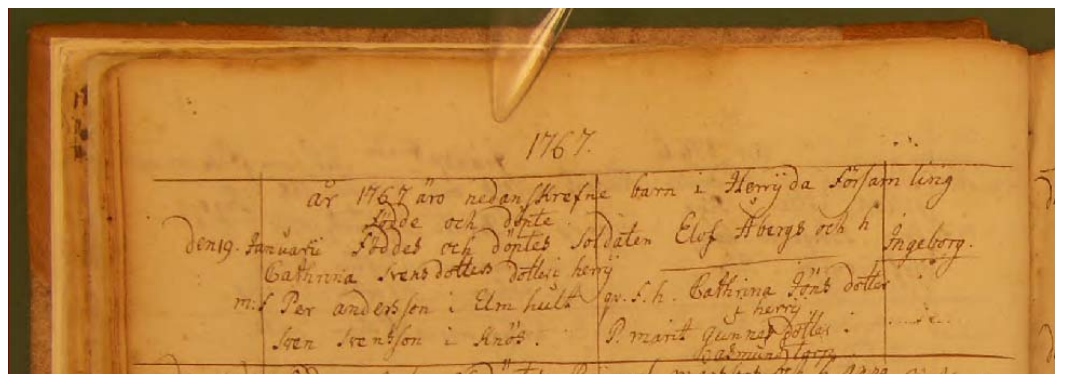 1767.
År 1767 äro nedanskrefne barn i Herryda Församling
födde och döpte.
den 19. Januarii föddes och döptes Soldaten Elof Åbergs och h
Cathrina Svensdotters dotter i herry Ingeborg.
m: f Per andersson i Elmhult qv. f. h. Cathrina Jöns dotter
i herry
Sven Svensson i Knös. P. marit gunnar dotter i